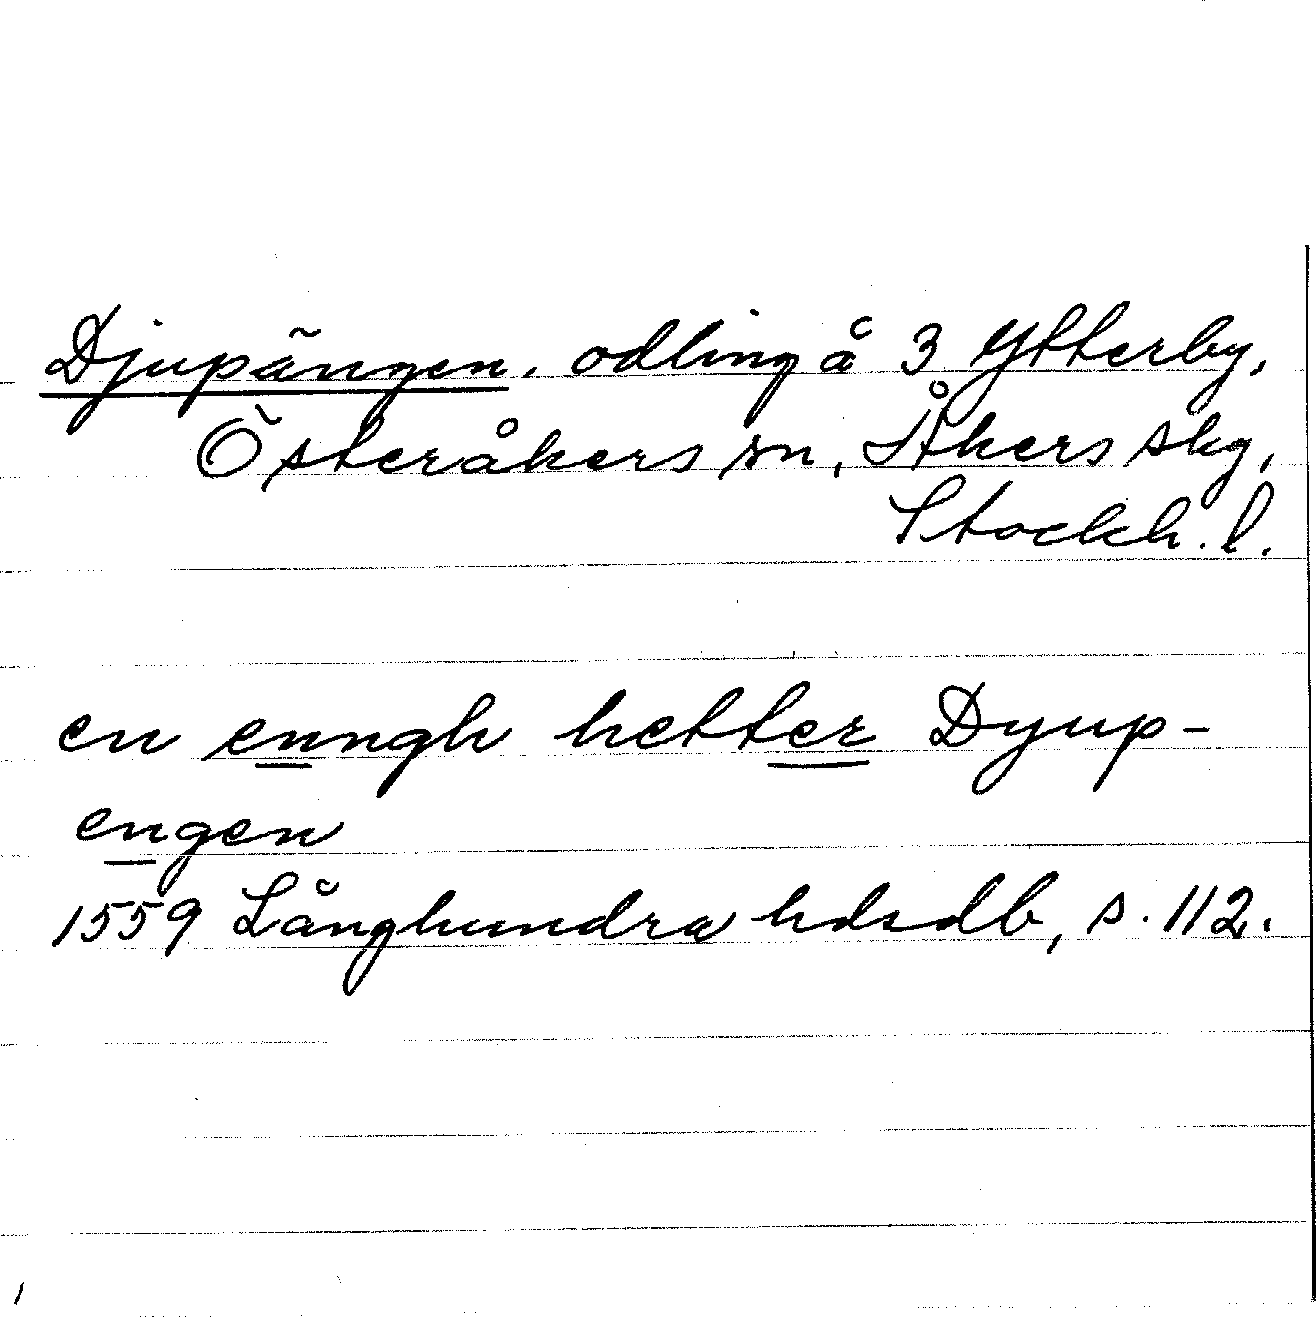 Djupängen, odling å 3 Ytterby,
Österåkers sn, Åkers skg,
Stockh. l.
en enngh hetter Dyup-
engen
1559 Långhundra hdsdb, s. 112.